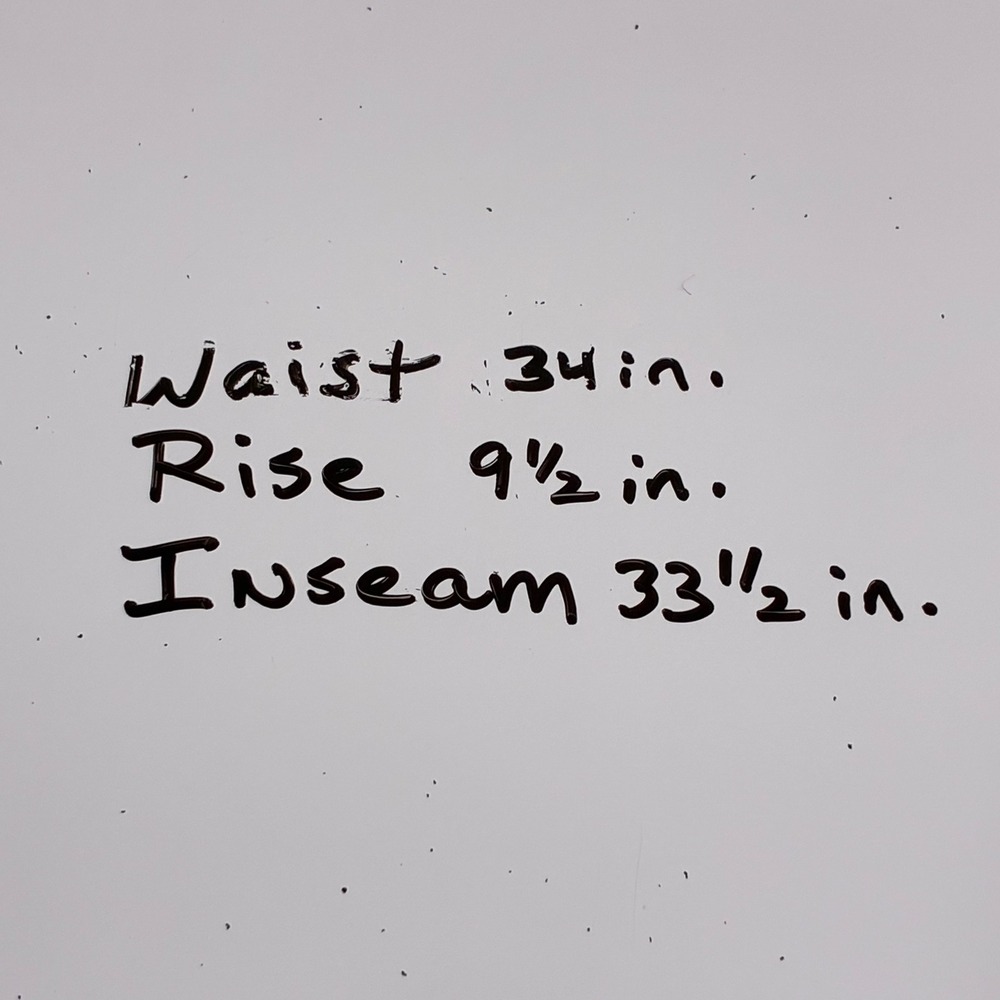 Waist 34 in.
Rise 9 1/2 in.
Inseam 33 1/2 in.